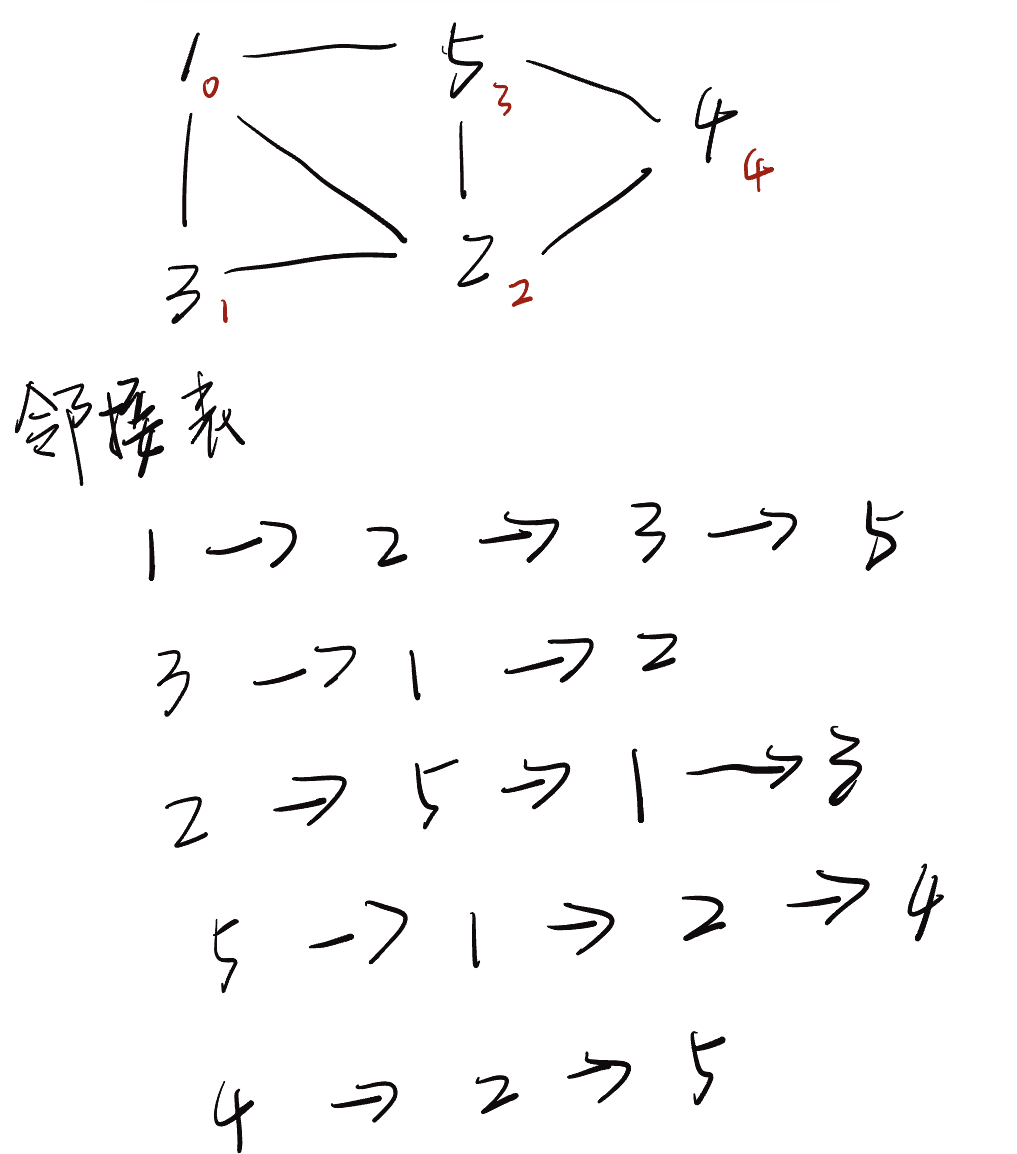 1 0 5 3
4 4
3 1 2 2
邻接表
1 → 2 → 3 → 5
3 → 1 → 2
2 → 5 → 1 → 3
5 → 1 → 2 → 4
4 → 2 → 5